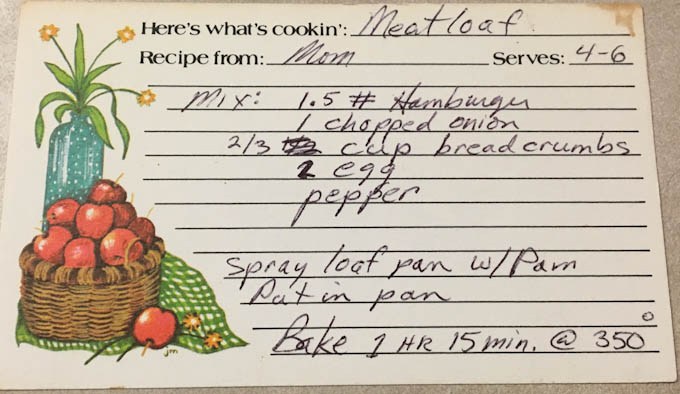 Here's what's cookin': Meatloaf
Recipe from: Mom Serves: 4-6
Mix: 1.5 # Hamburger
1 chopped onion
2/3 cup bread crumbs
2 egg
pepper
Spray loaf pan w/ Pam
Put in pan
Bake 1 HR 15 min. @ 350°
jm